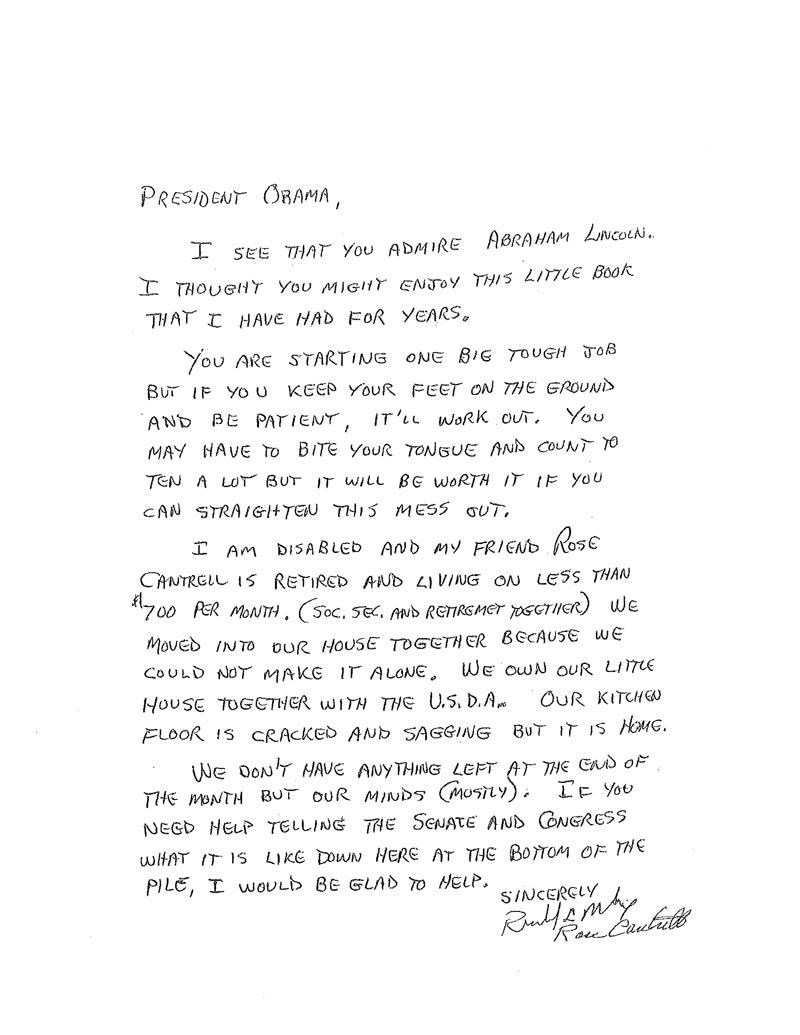 PRESIDENT OBAMA,
I SEE THAT YOU ADMIRE ABRAHAM LINCOLN.
I THOUGHT YOU MIGHT ENJOY THIS LITTLE BOOK
THAT I HAVE HAD FOR YEARS.
YOU ARE STARTING ONE BIG TOUGH JOB
BUT IF YOU KEEP YOUR FEET ON THE GROUND
AND BE PATIENT, IT'LL WORK OUT. YOU
MAY HAVE TO BITE YOUR TONGUE AND COUNT TO
TEN A LOT BUT IT WILL BE WORTH IT IF YOU
CAN STRAIGHTEN THIS MESS OUT.
I AM DISABLED AND MY FRIEND ROSE
CANTRELL IS RETIRED AND LIVING ON LESS THAN
$700 PER MONTH. (SOC. SEC. AND RETIREMET TOGETHER) WE
MOVED INTO OUR HOUSE TOGETHER BECAUSE WE
COULD NOT MAKE IT ALONE. WE OWN OUR LITTLE
HOUSE TOGETHER WITH THE U.S.D.A.. OUR KITCHEN
FLOOR IS CRACKED AND SAGGING BUT IT IS HOME.
WE DON'T HAVE ANYTHING LEFT AT THE END OF
THE MONTH BUT OUR MINDS (MOSTLY). IF YOU
NEED HELP TELLING THE SENATE AND CONGRESS
WHAT IT IS LIKE DOWN HERE AT THE BOTTOM OF THE
PILE, I WOULD BE GLAD TO HELP.
SINCERELY
Rose Cantrell